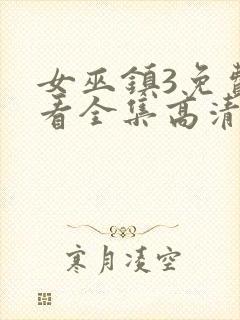 女巫鎮3免費
看全集高清
寒月凌空